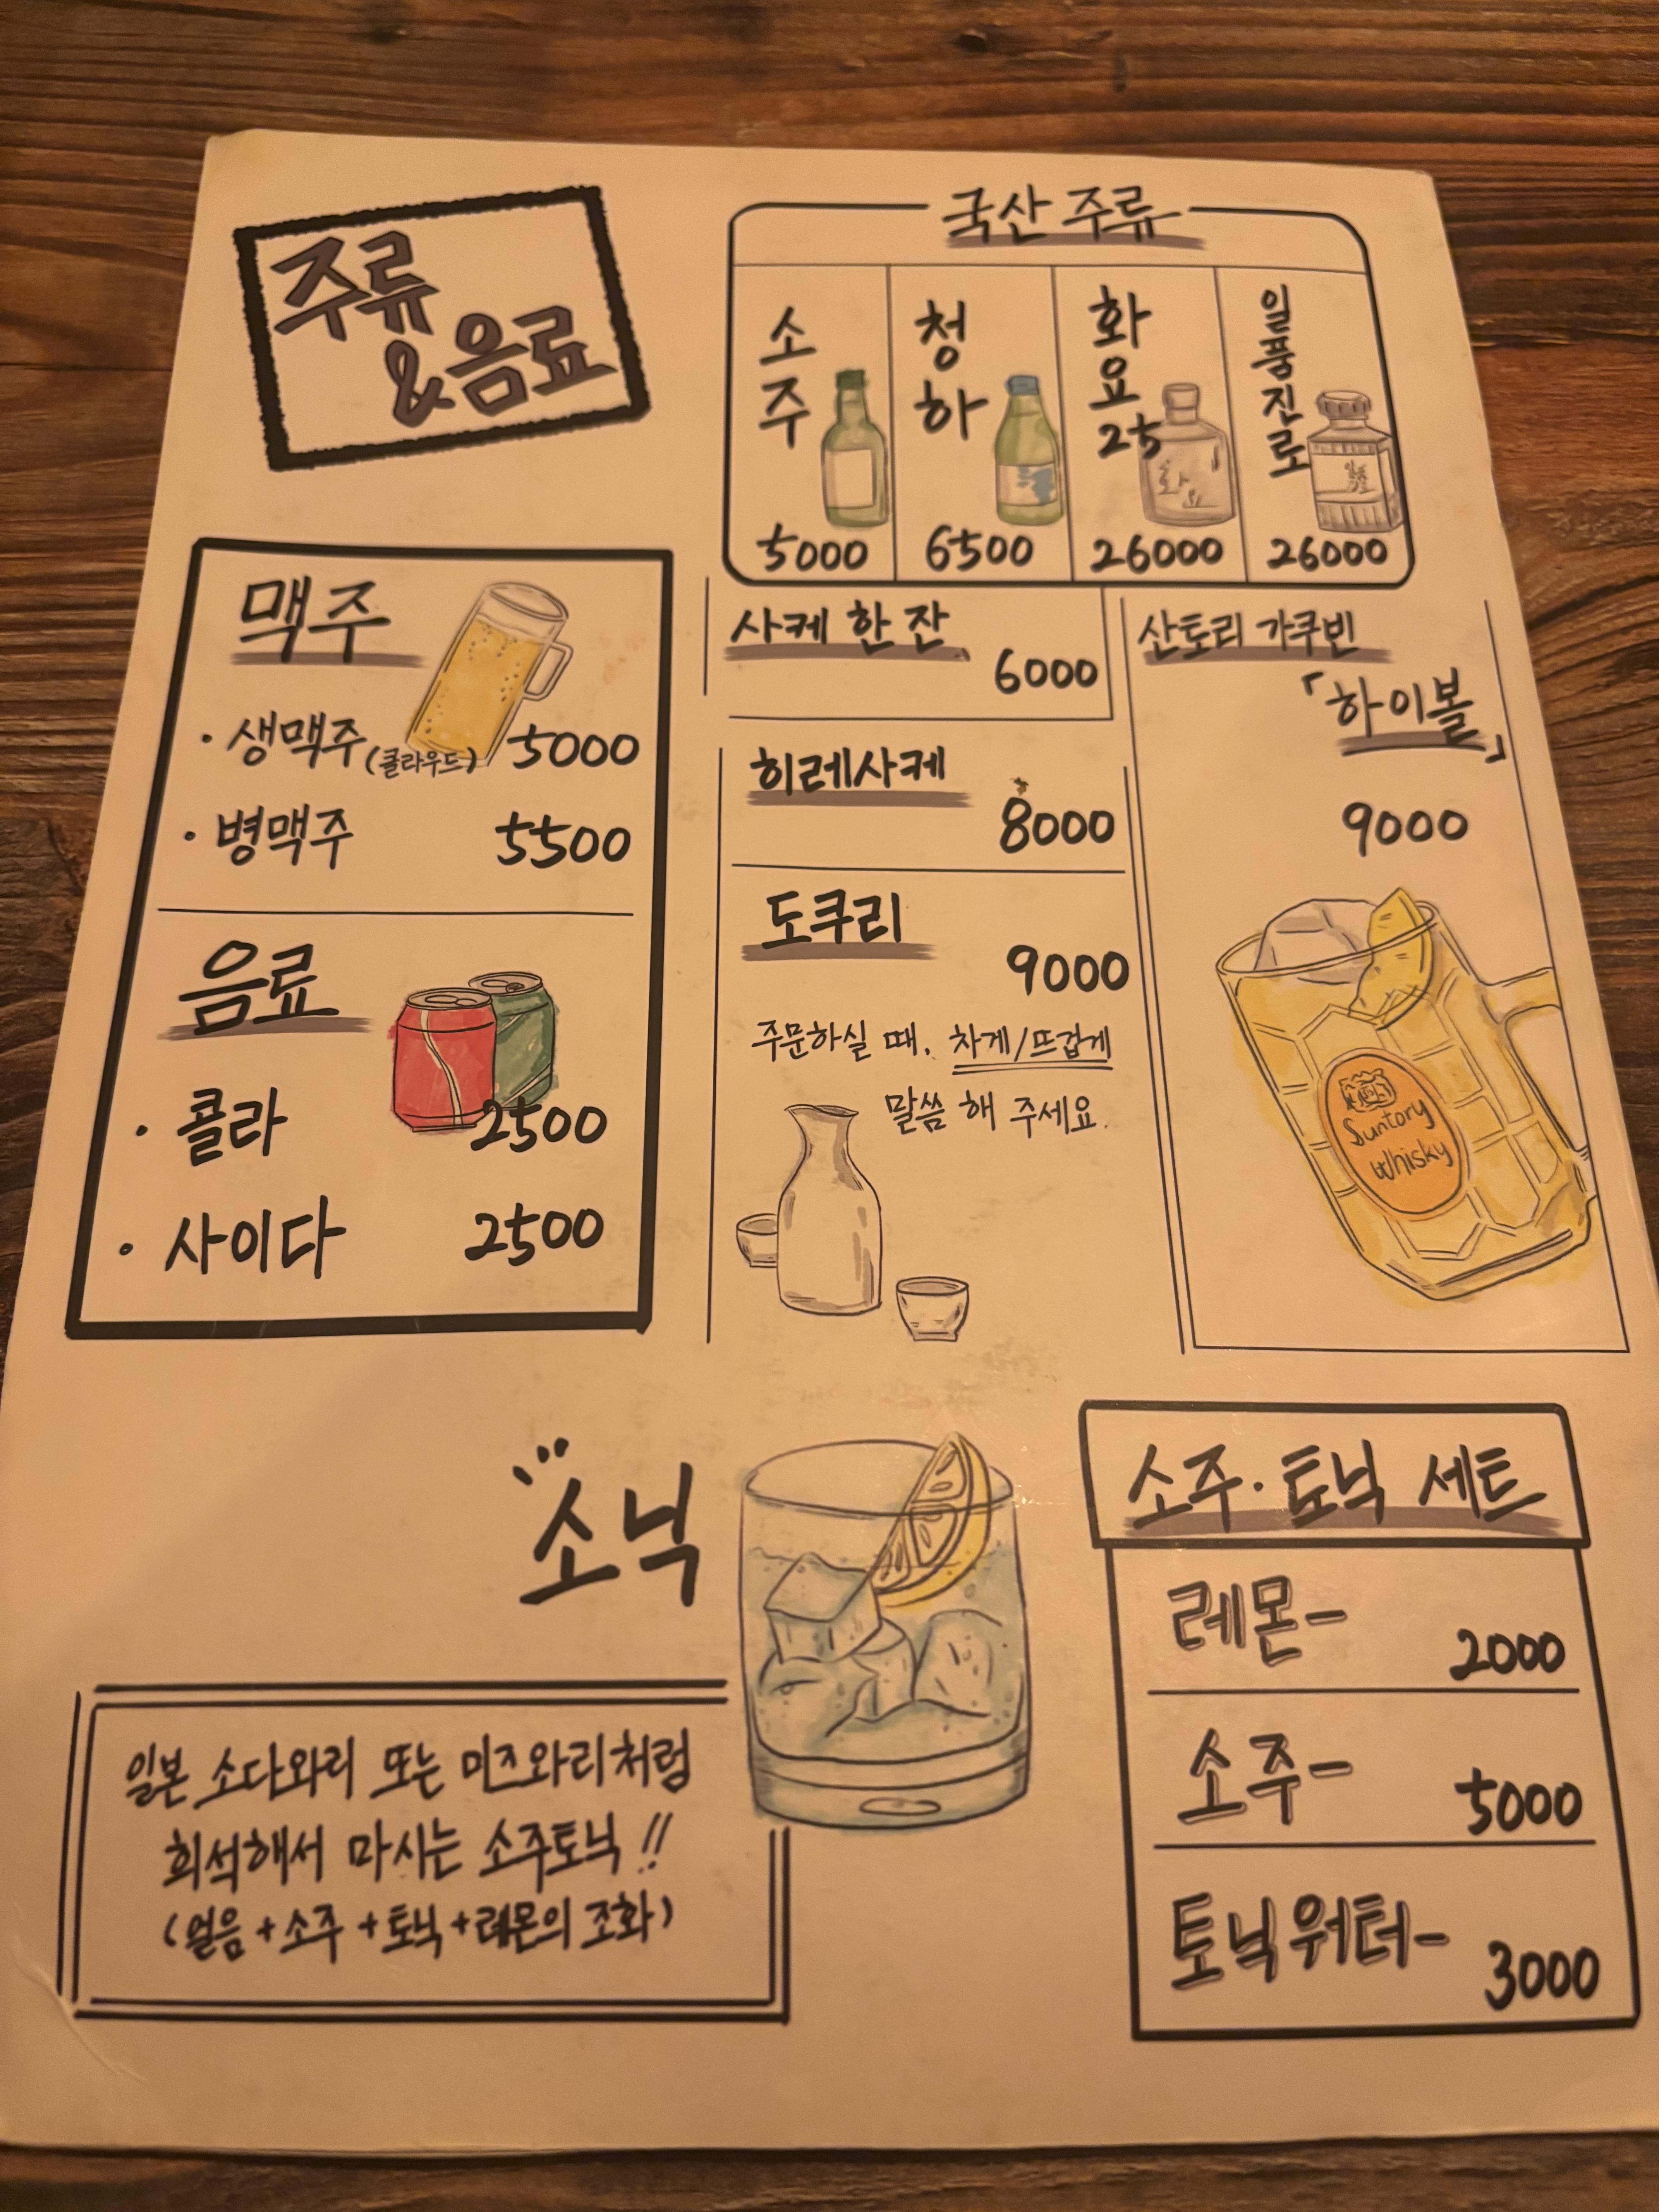 주류
&음료
국산 주류
소주
5000
청하
6500
화요25
화요
26000
일품진로
26000
맥주
· 생맥주(클라우드) 5000
· 병맥주 5500
음료
· 콜라 2500
· 사이다 2500
사케 한 잔
6000
히레사케
8000
도쿠리
9000
주문하실 때, 차게/뜨겁게
말씀 해 주세요.
산토리 가쿠빈
「하이볼」
9000
Suntory
Whisky
소닉
일본 소다와리 또는 미즈와리처럼
희석해서 마시는 소주토닉!!
(얼음+소주+토닉+레몬의 조화)
소주·토닉 세트
레몬- 2000
소주- 5000
토닉워터- 3000